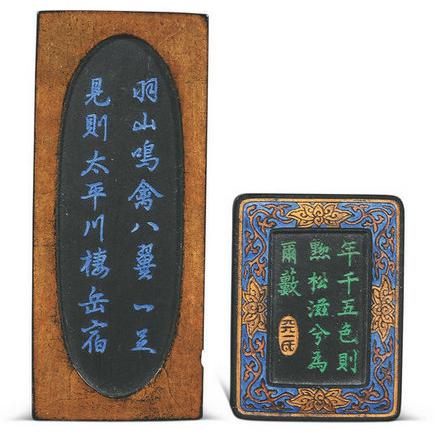 羽山鳴禽八翼一足
見則太平川棲岳宿
年千五色則
黝松滋兮為
爾藪